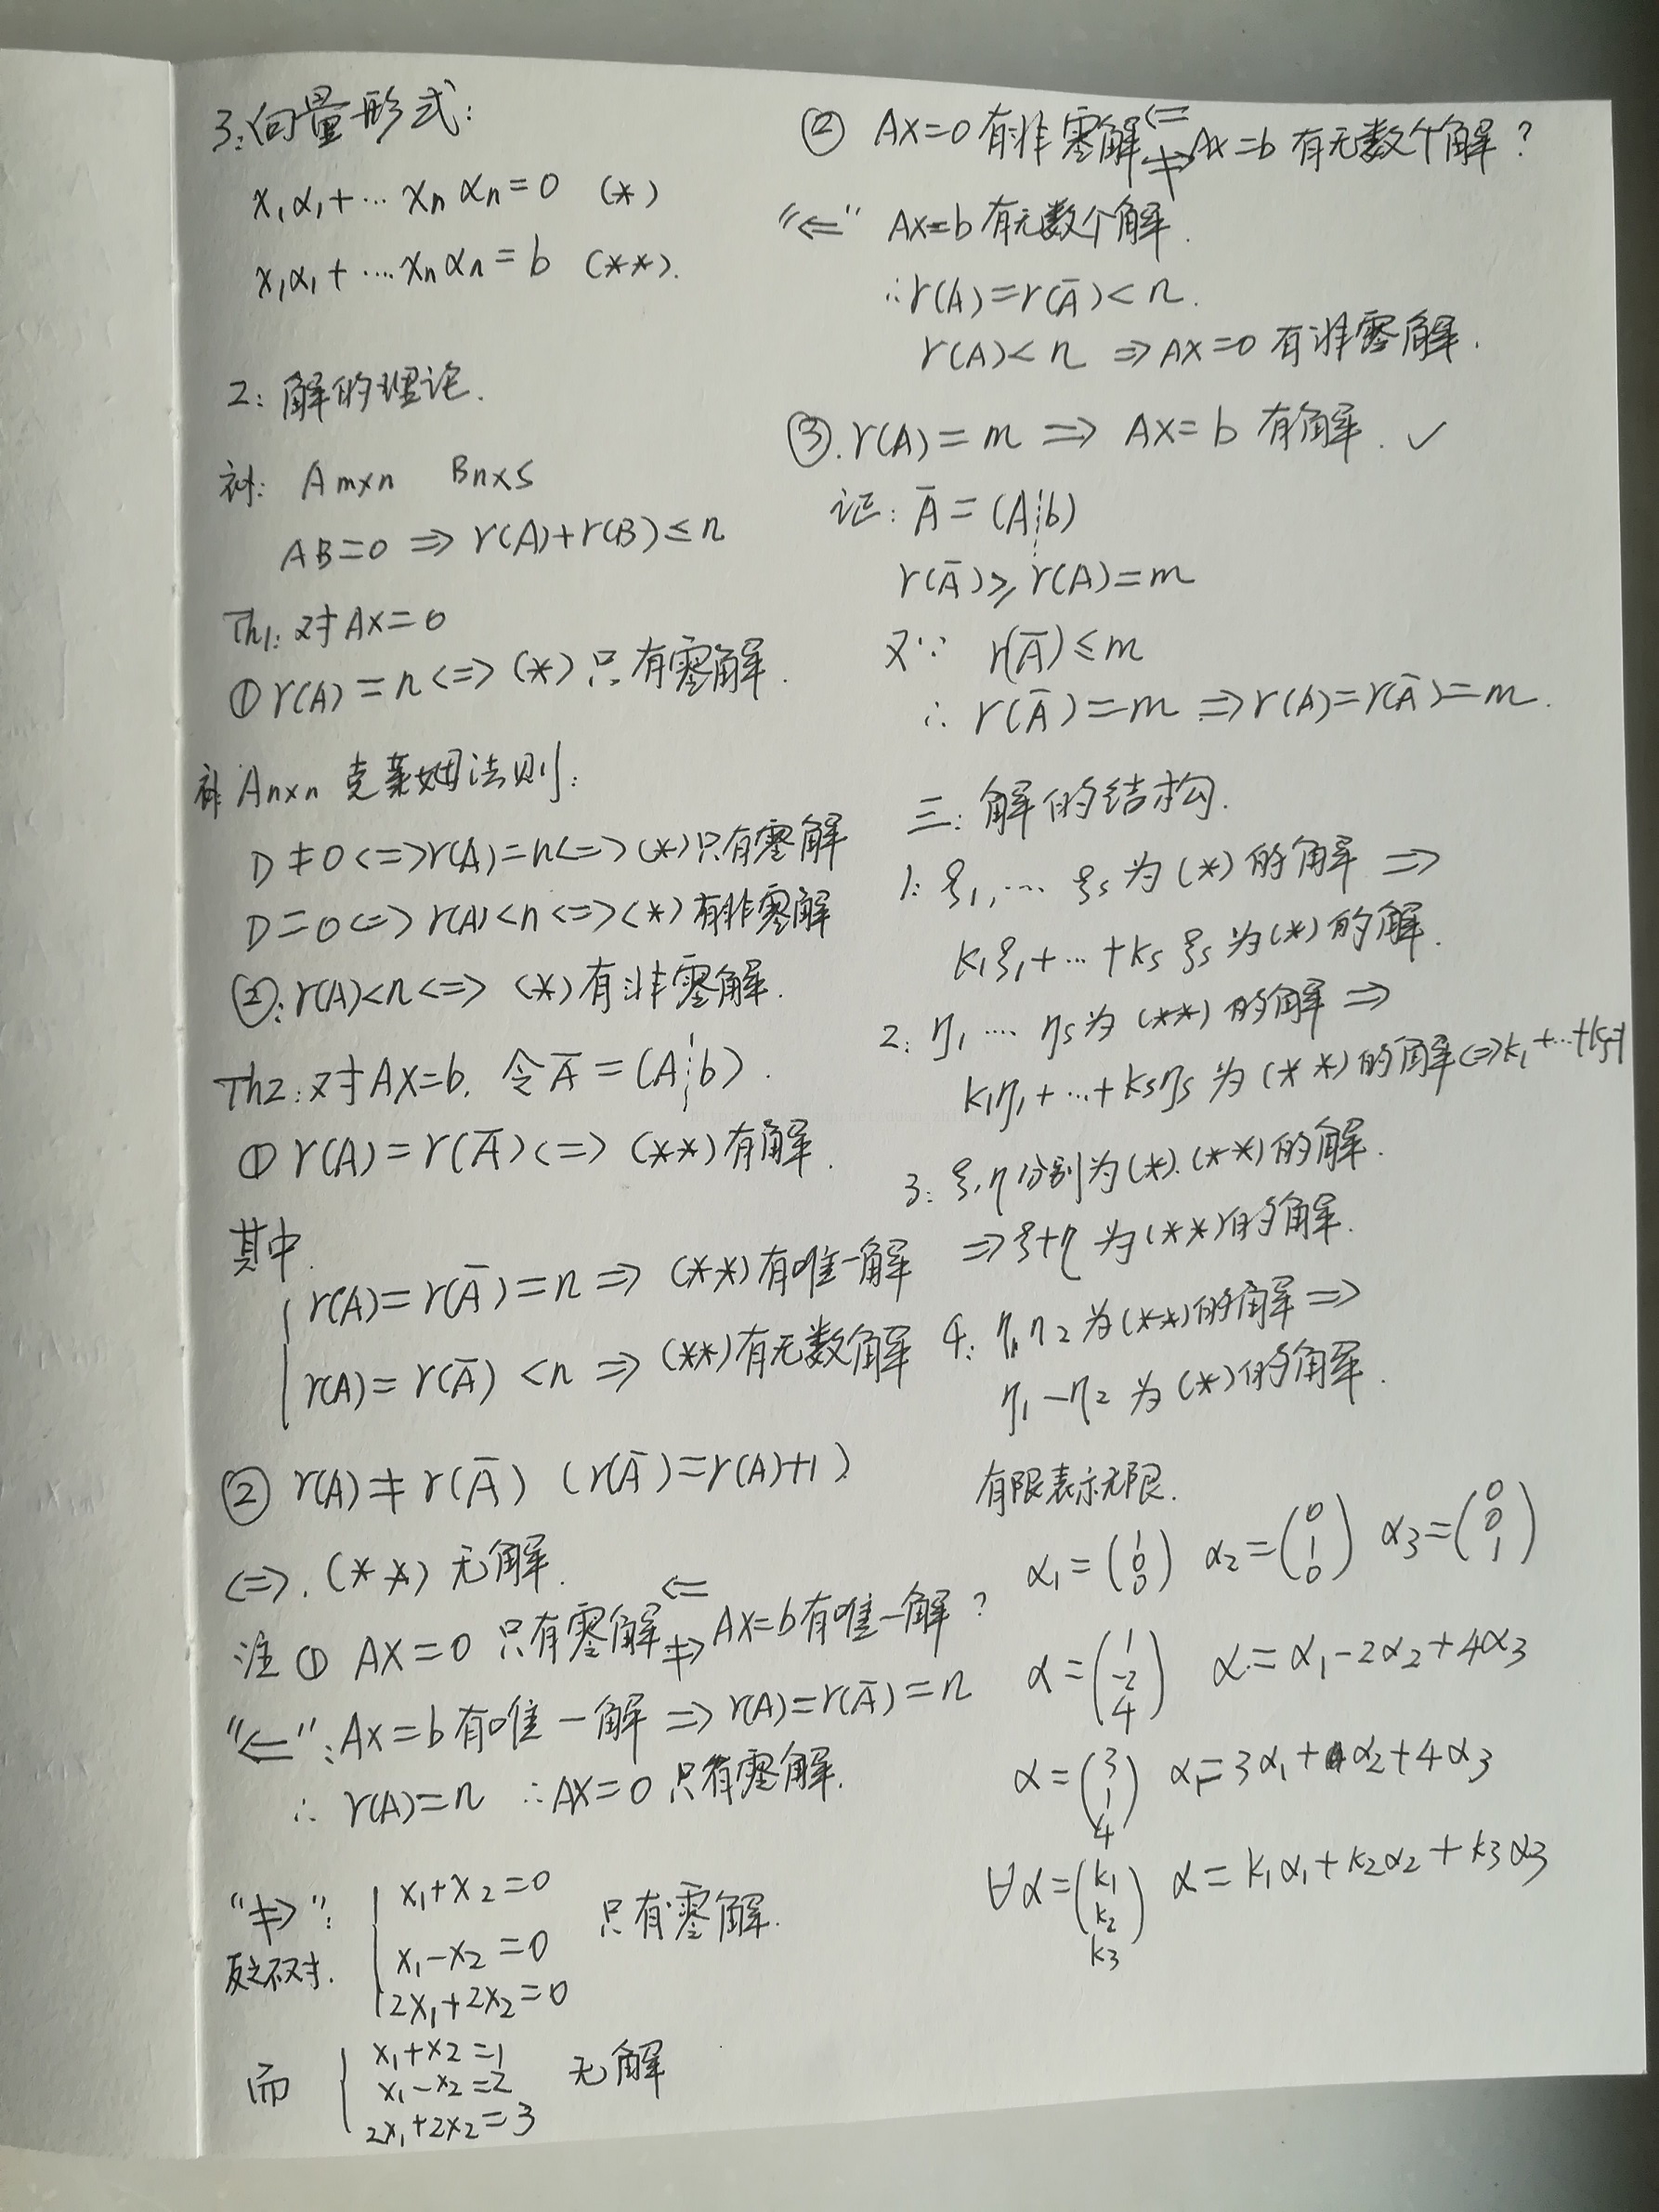 3: 向量形式:
x₁α₁+⋯ xₙαₙ=0 (*)
x₁α₁+⋯xₙαₙ=b (**).
2: 解的理论.
补: Am×n Bn×s
AB=0 ⇒ r(A)+r(B)≤n
Th1: 对AX=0
① r(A)=n <=> (*) 只有零解.
补 An×n 克莱姆法则:
D≠0 <=> r(A)=n <=> (*)只有零解
D=0 <=> r(A)<n <=> (*)有非零解
②: r(A)<n <=> (*)有非零解.
Th2: 对AX=b, 令Ā=(A┊b).
① r(A)=r(Ā) <=> (**)有解.
其中
{ r(A)=r(Ā)=n ⇒ (**)有唯一解
r(A)=r(Ā)<n ⇒ (**)有无数解
② r(A)≠r(Ā) (r(Ā)=r(A)+1)
<=>. (**) 无解.
注 ① AX=0 只有零解 ⇐ ⇏ AX=b有唯一解?
"⇐": AX=b有唯一解 ⇒ r(A)=r(Ā)=n
∴ r(A)=n ∴AX=0 只有零解.
"⇏": { x₁+x₂=0
反之不对. x₁-x₂=0 只有零解.
2x₁+2x₂=0
{ x₁+x₂=1
而 x₁-x₂=2 无解
2x₁+2x₂=3
② AX=0有非零解 ⇐ ⇏ AX=b有无数个解?
"⇐" AX=b有无数个解.
∴r(A)=r(Ā)<n.
r(A)<n ⇒ AX=0有非零解.
③. r(A)=m ⇒ AX=b 有解. ✓
证: Ā=(A┊b)
r(Ā)≥r(A)=m
又∵ r(Ā)≤m
∴ r(Ā)=m ⇒ r(A)=r(Ā)=m.
三: 解的结构.
1: ξ₁,⋯ ξs为(*)的解 ⇒
k₁ξ₁+⋯+ksξs为(*)的解.
2: η₁⋯ηs为(**)的解 ⇒
k₁η₁+⋯+ksηs为(**)的解<=>k₁+⋯+ks=1
3: ξ,η分别为(*).(**)的解.
⇒ξ+η 为(**)的解.
4: η₁η₂为(**)的解 ⇒
η₁-η₂为(*)的解.
有限表示无限.
α₁=(1 0 0) α₂=(0 1 0) α₃=(0 0 1)
α=(1 -2 4) α=α₁-2α₂+4α₃
α=(3 1 4) α=3α₁+α₂+4α₃
∀α=(k₁ k₂ k₃) α=k₁α₁+k₂α₂+k₃α₃